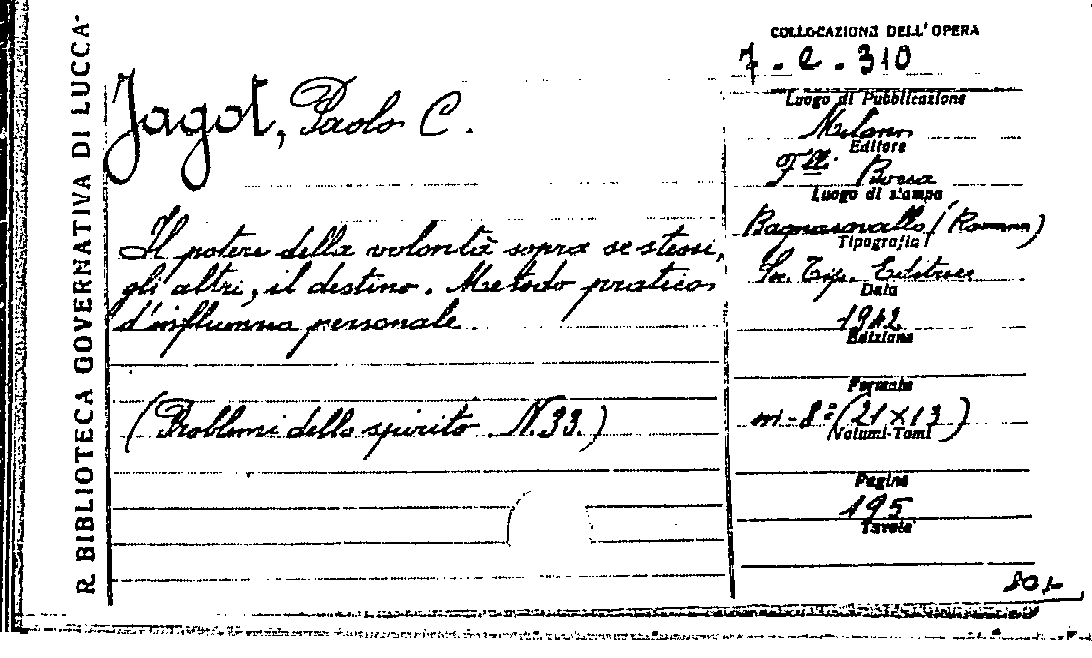 R. BIBLIOTECA GOVERNATIVA DI LUCCA
Jagot, Paolo C.
Il potere della volontà sopra se stessi,
gli altri, il destino. Metodo pratico
d'influenza personale
(Problemi dello spirito. N. 33.)
COLLOCAZIONE DELL'OPERA
7 - e - 310
Luogo di Pubblicazione
Milano
Editore
F.lli Bocca
Luogo di stampa
Bagnacavallo (Ravenna)
Tipografia
Soc. Tip. Editrice
Data
1942
Edizione
Formato
m - 8º (21 x 13)
Volumi-Tomi
Pagine
195
Tavole